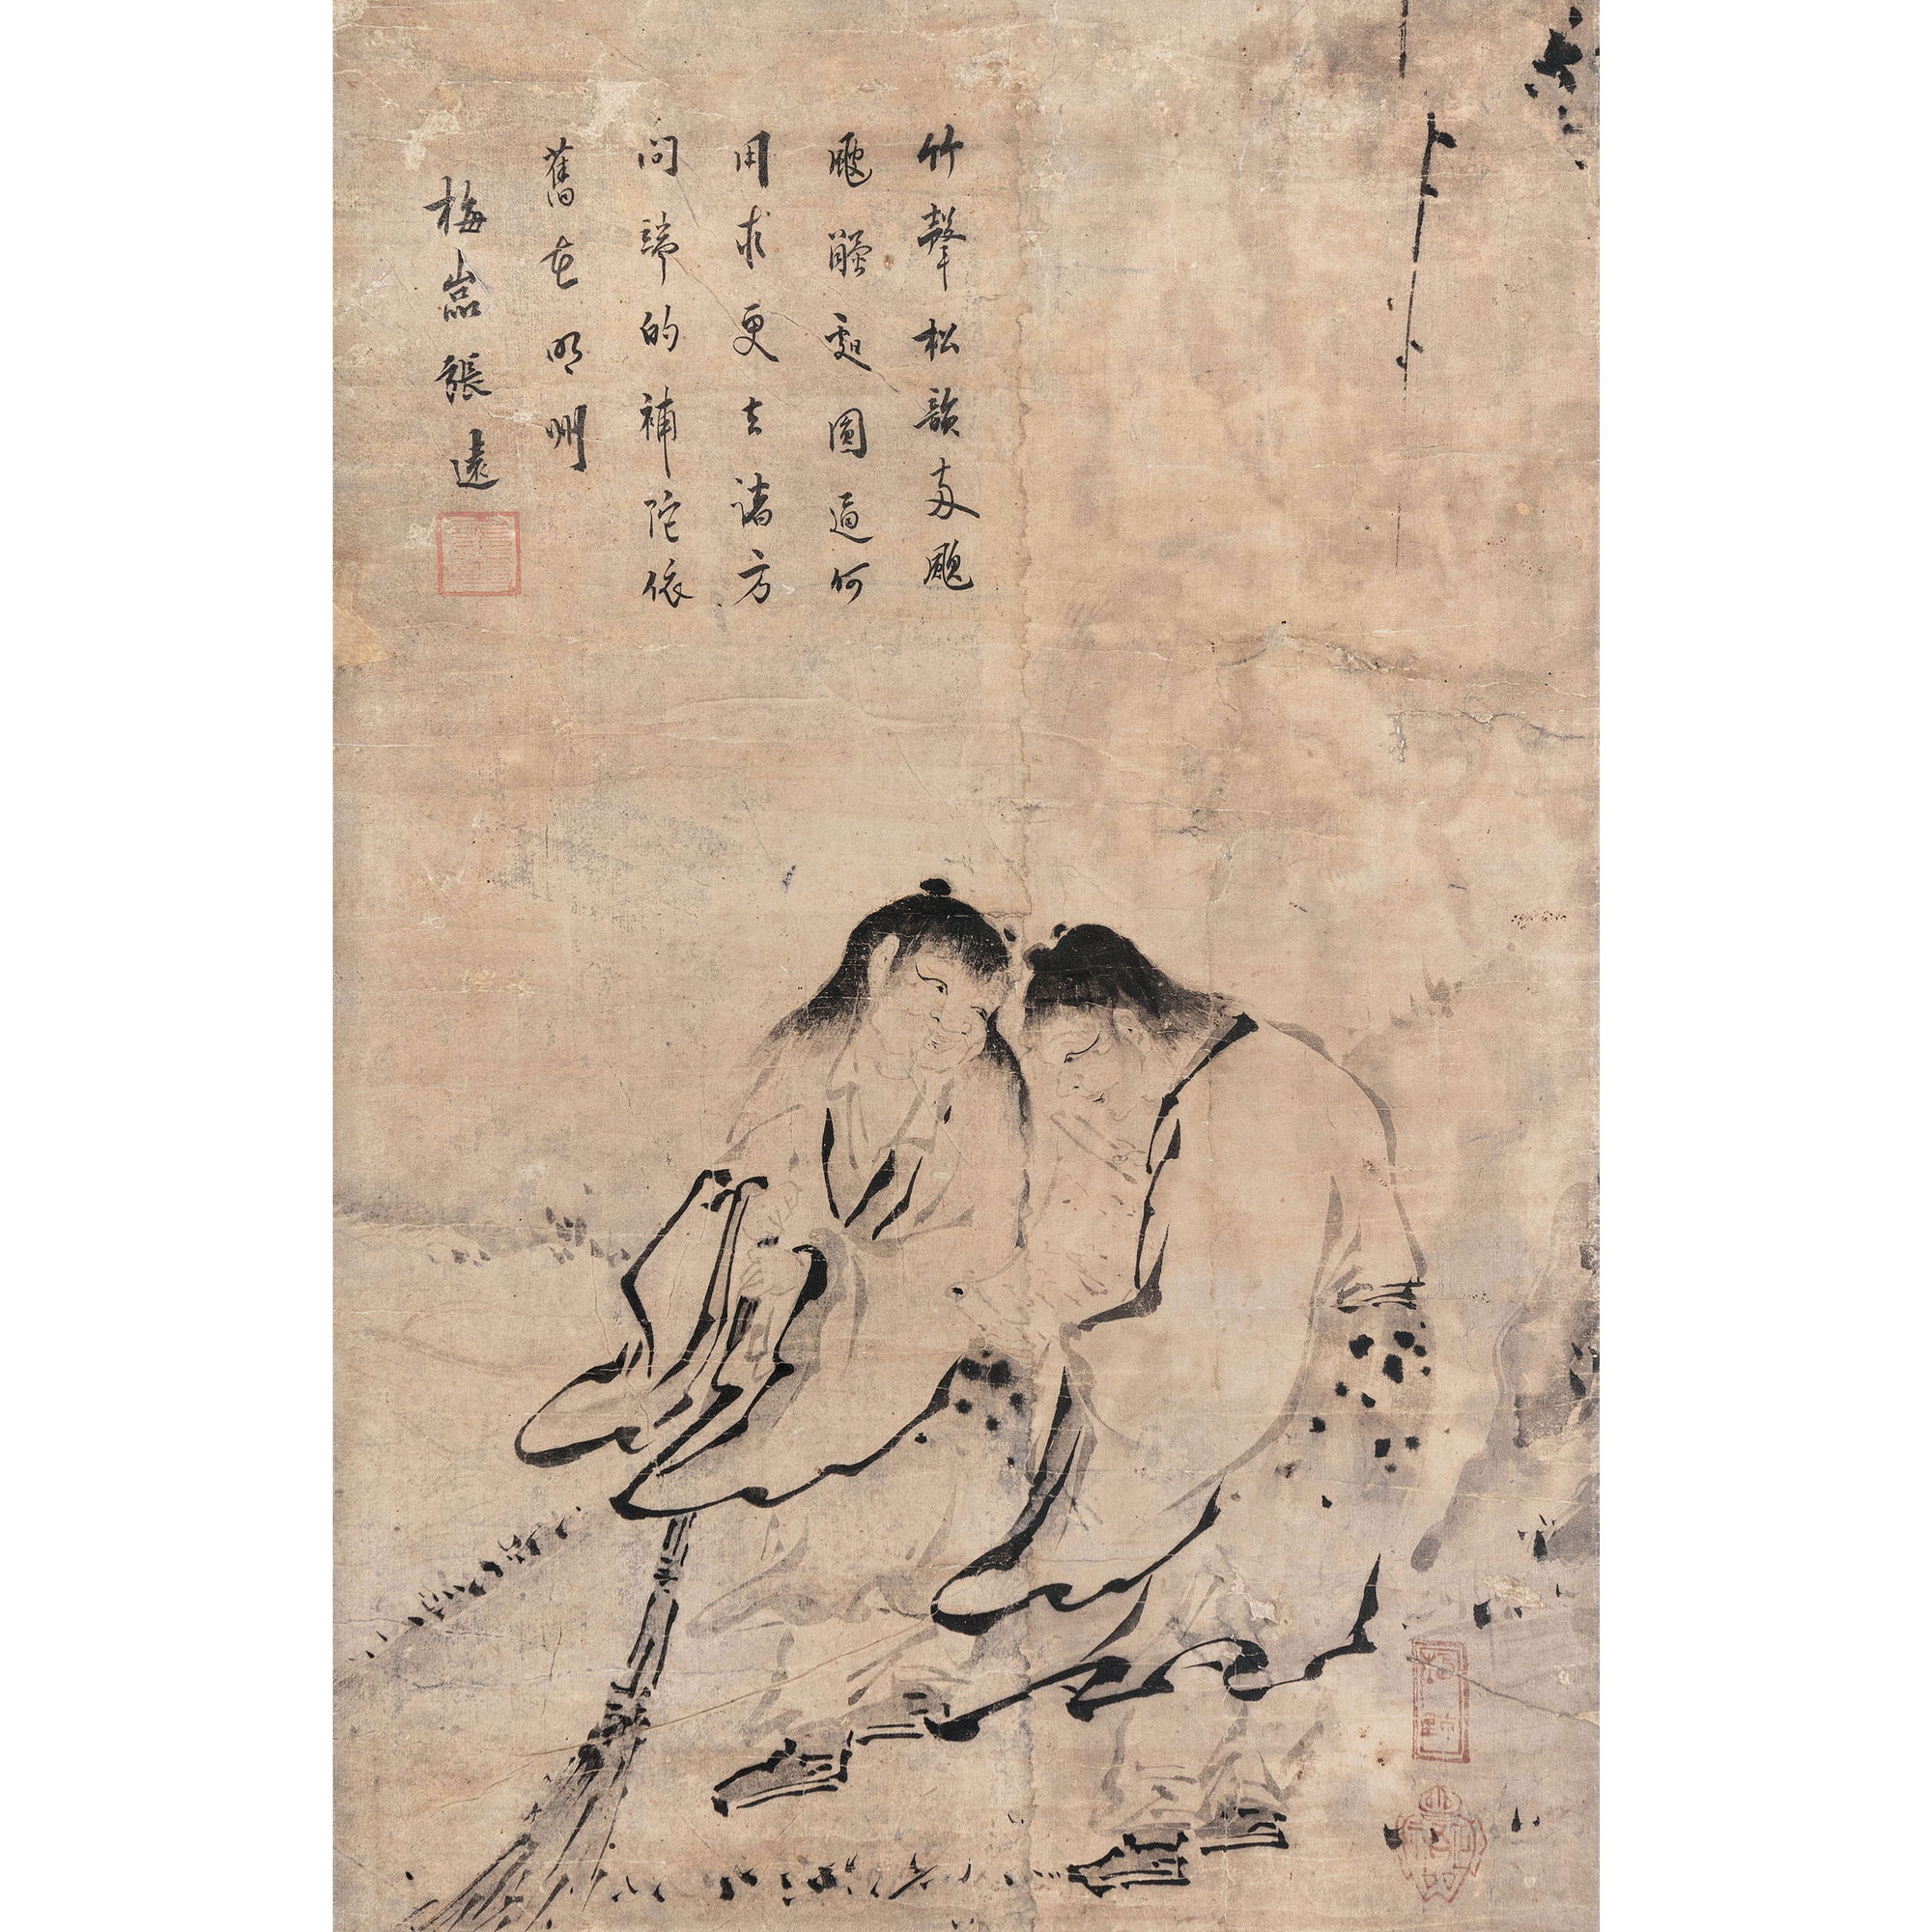 竹聲松韻兩颼
颼觸處圓通何
用求更去諸方
問端的補陀依
舊在明州
梅嵓張遠